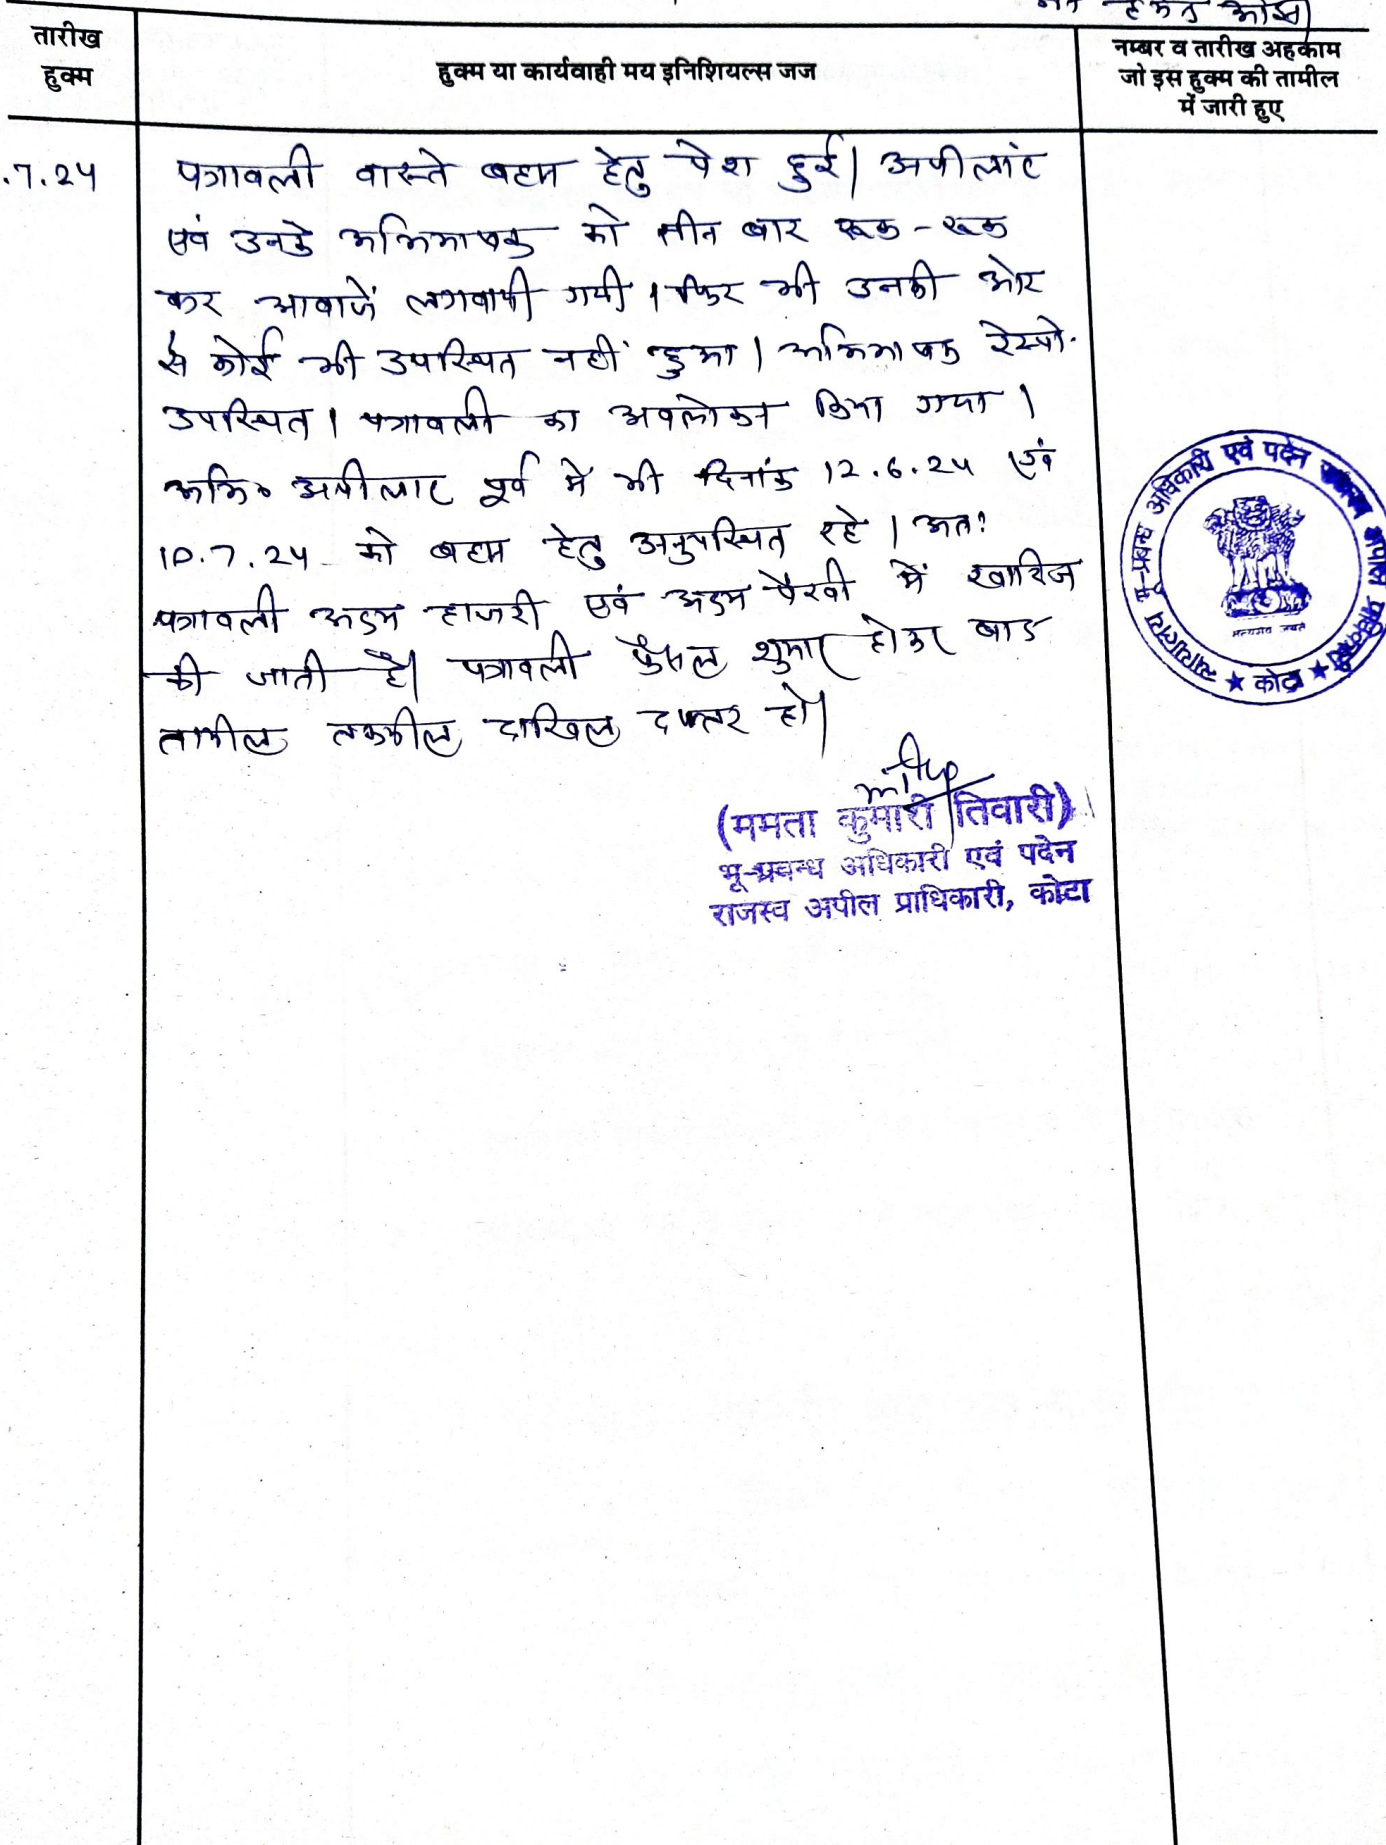 तारीख
हुक्म
हुक्म या कार्यवाही मय इनिशियल्स जज
नम्बर व तारीख अहकाम
जो इस हुक्म की तामील
में जारी हुए
.7.24
पत्रावली वास्ते बहस हेतु पेश हुई। अपीलांट
एवं उनके अभिभाषक को तीन बार रूक-रूक
कर आवाजें लगवायी गयी। फिर भी उनकी ओर
से कोई भी उपस्थित नहीं हुआ। अभिभाषक रेस्पो.
उपस्थित। पत्रावली का अवलोकन किया गया।
अभि० अपीलांट पूर्व में भी दिनांक 12.6.24 एवं
10.7.24 को बहस हेतु अनुपस्थित रहे। अतः
पत्रावली अदम हाजरी एवं अदम पैरवी में खारिज
की जाती है। पत्रावली फैसल शुमार होकर बाद
तामील तकमील दाखिल दफ्तर हो।
(ममता कुमारी तिवारी)
भू-प्रबन्ध अधिकारी एवं पदेन
राजस्व अपील प्राधिकारी, कोटा
न्यायालय भू-प्रबन्ध अधिकारी एवं पदेन राजस्व अपील प्राधिकारी
सत्यमेव जयते
★ कोटा ★